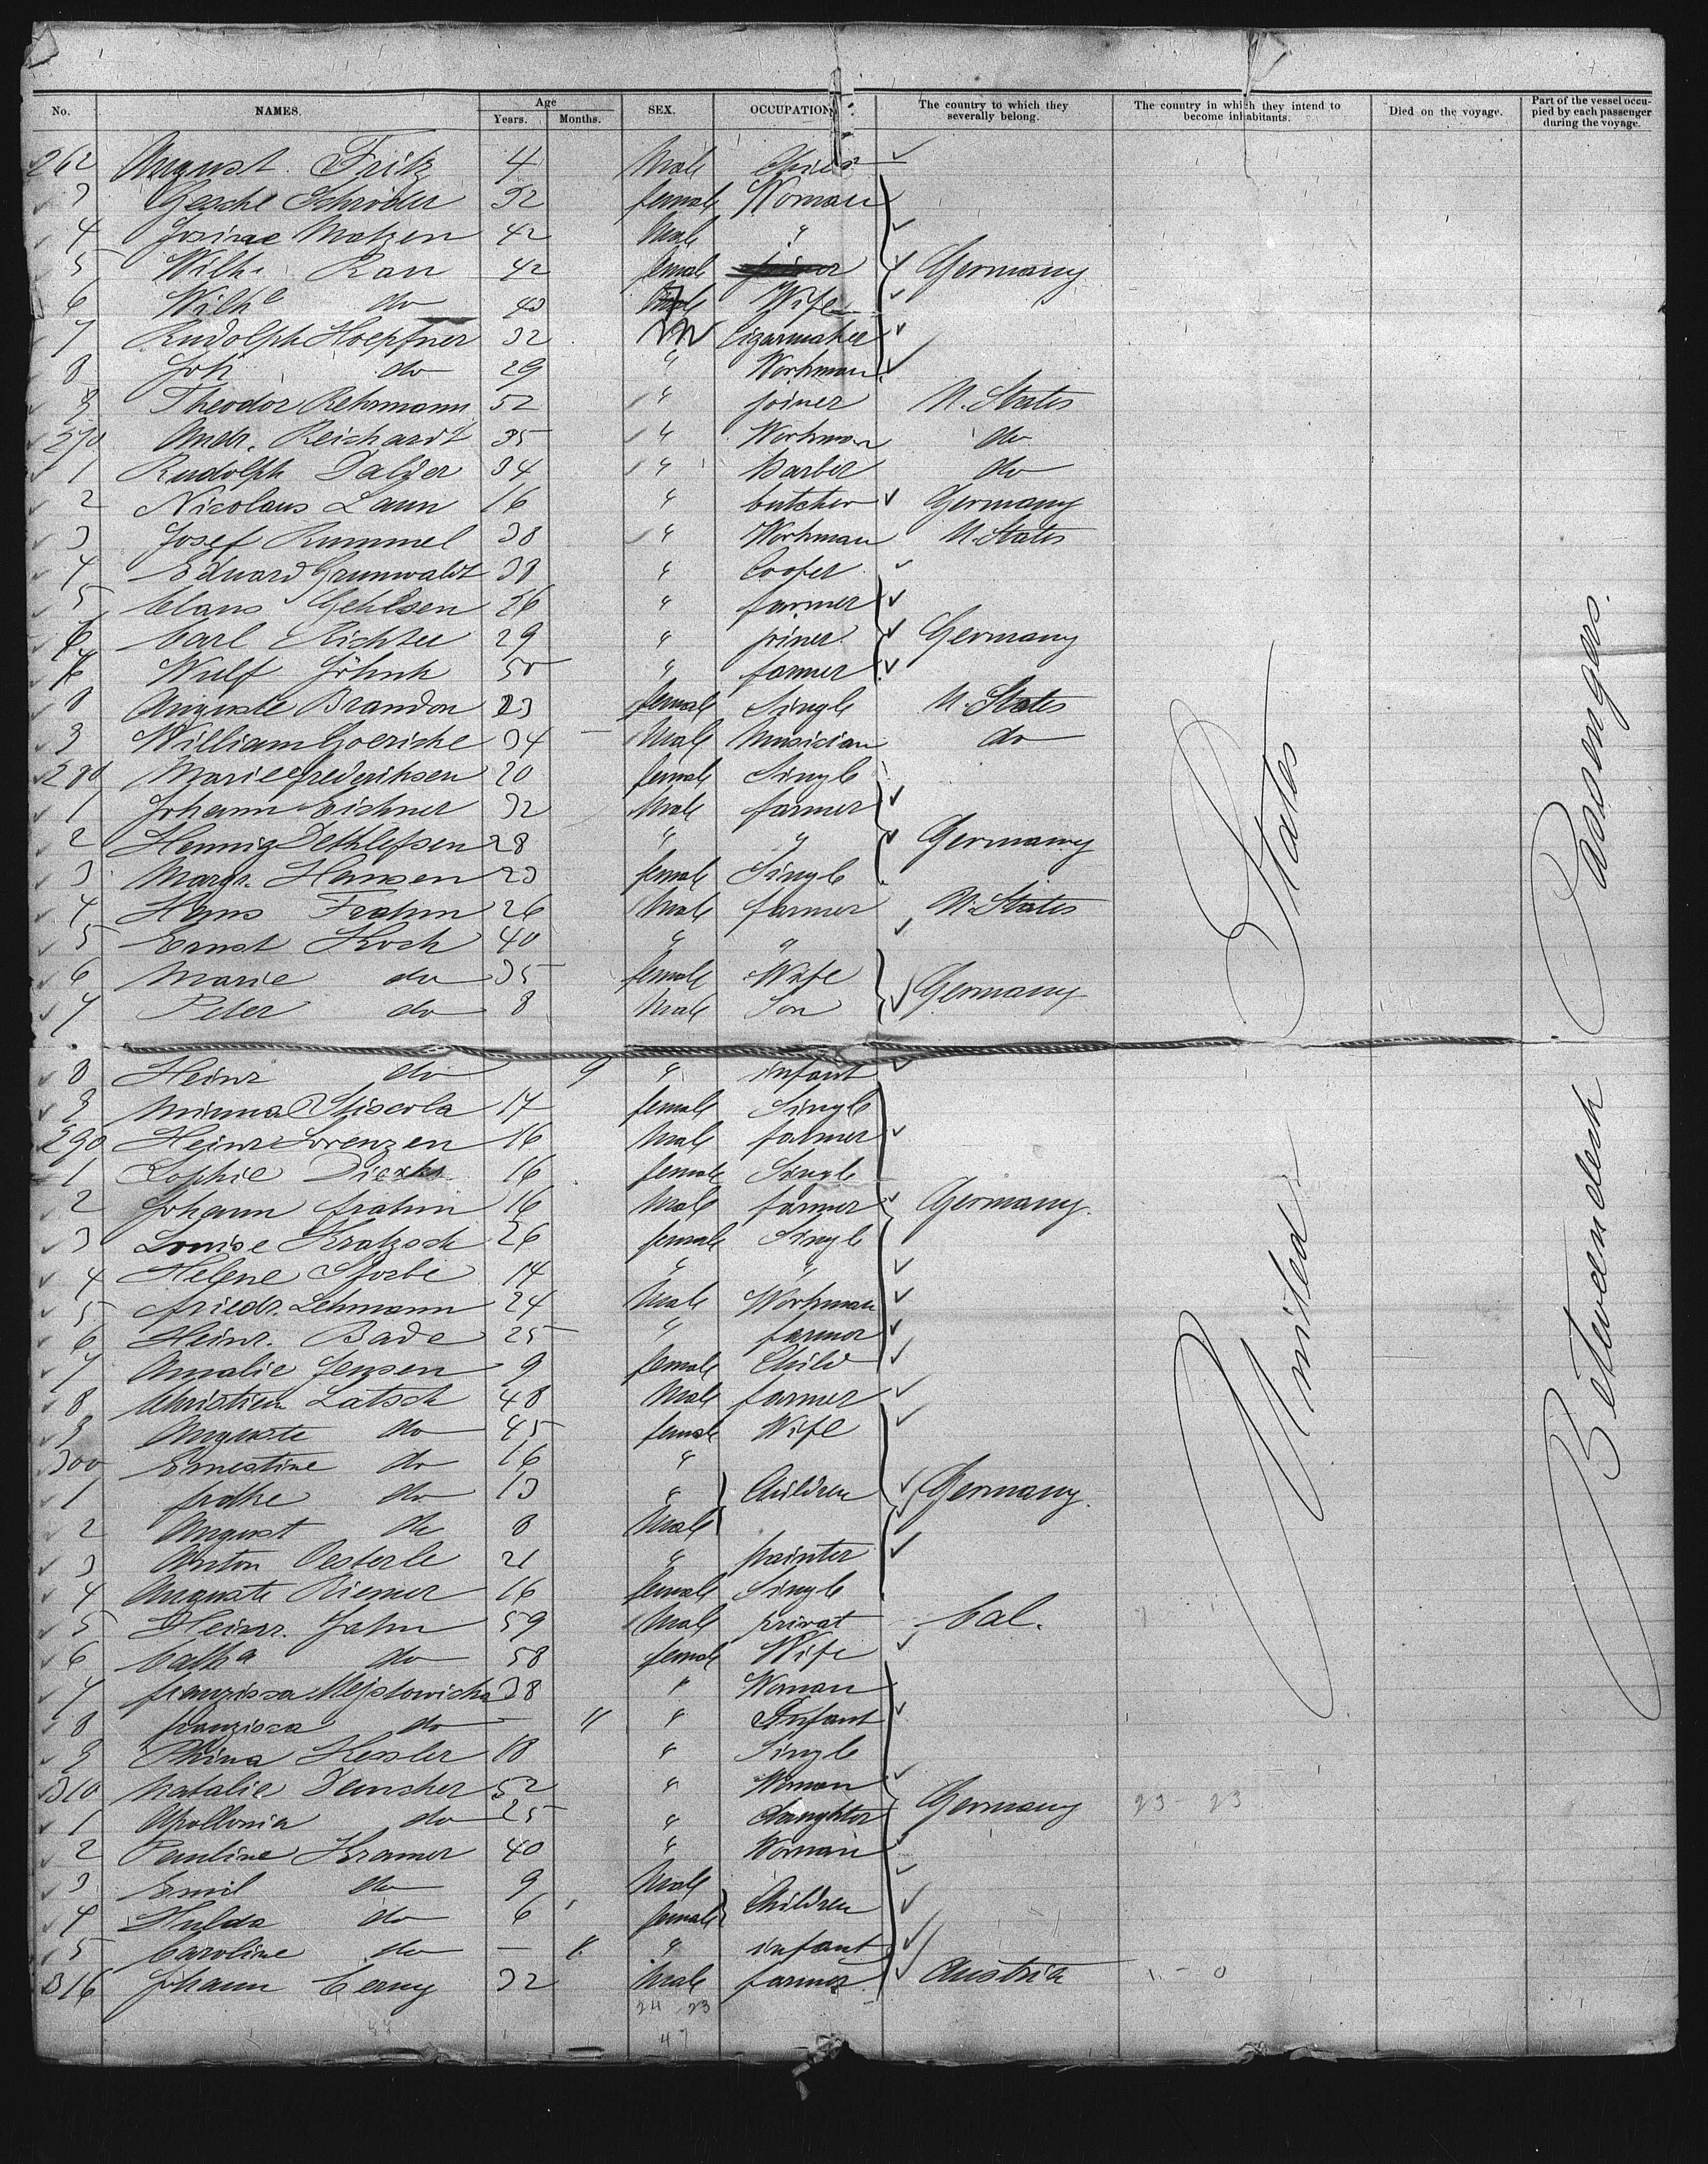 No. NAMES. Age Years. Months. SEX. OCCUPATION. The country to which they severally belong. The country in which they intend to become inhabitants. Died on the voyage. Part of the vessel occupied by each passenger during the voyage.
262 August Fritz 4 Male Child
3 Gesche Schröder 32 female Woman
4 Matzen 42 Male "
5 Wilh. Rau 42 female joiner Germany
6 Wilh^e do 43 Male Wife
7 Rudolph Hoepfner 32 M Cigarmaker
8 Joh. do 29 " Workman
9 Theodor Rehrmann 52 " joiner U. States
270 Andr. Reichardt 35 " Workman do
1 Rudolph Dalzer 34 " Barber do
2 Nicolaus Laun 16 " butcher Germany
3 Josef Rummel 38 " Workman U. States
4 Eduard Grunwaldt 38 " Cooper
5 Claus Gehlsen 26 " farmer
6 Carl Richter 29 " joiner Germany
7 Wulf Jöhnk 50 " farmer
8 Auguste Brandon 23 female Single U. States
9 William Goericke 34 Male Musician do
280 Marie Frederiksen 20 female Single
1 Johann Eichner 32 Male farmer
2 Hennig Dethlefsen 28 " " Germany
3 Margr. Hansen 23 female Single
4 Hans Frahm 26 Male farmer U. States
5 Ernst Koch 40 " "
6 Marie do 35 female Wife
7 Peter do 8 Male Son Germany
8 Heinr do 9 " infant
9 Minna Stiscola 17 female Single
290 Heinr Lorenzen 16 Male farmer
1 Sophie Dierks 16 female Single
2 Johann Frahm 16 Male farmer Germany.
3 Louise Kratzsch 26 female Single
4 Helene 14 " "
5 Friedr. Lehmann 24 Male Workman
6 Heinr. Bade 25 " farmer
7 Amalie Jensen 9 female Child
8 Christian Latsch 48 Male farmer
9 Auguste do 45 female Wife
300 Ernestine do 16 "
1 do 13 " Children Germany.
2 August do 8 Male
3 Anton Oesterle 21 " painter
4 Auguste Riemer 16 female Single
5 Heinr. Jahn 59 Male privat Cal.
6 Cath^a do 58 female Wife
7 Franzisca 38 " Woman
8 Franzisca do — 11 " Infant
9 Phina Hessler 18 " Single
310 Natalie Denscher 52 " Woman
1 Apollonia do 25 " daughter Germany 23 - 23
2 Pauline Kramer 40 " Woman
3 Emil do 9 Male
4 Hulda do 6 female Children
5 Caroline do — " infant
316 Johann Cerny 32 Male farmer Austria 1 - 0
24 23
47
United States
Between deck Passengers.